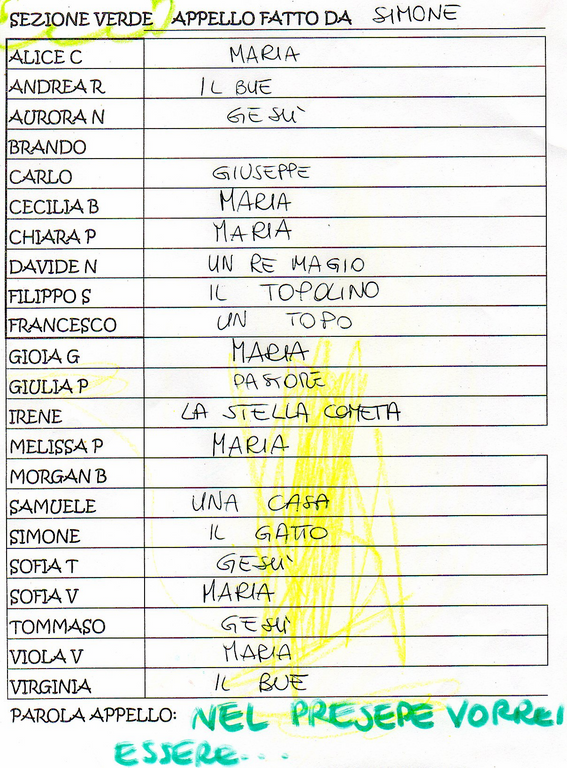 SEZIONE VERDE APPELLO FATTO DA SIMONE
ALICE C MARIA
ANDREA R IL BUE
AURORA N GESÙ
BRANDO
CARLO GIUSEPPE
CECILIA B MARIA
CHIARA P MARIA
DAVIDE N UN RE MAGIO
FILIPPO S IL TOPOLINO
FRANCESCO UN TOPO
GIOIA G MARIA
GIULIA P PASTORE
IRENE LA STELLA COMETA
MELISSA P MARIA
MORGAN B
SAMUELE UNA CASA
SIMONE IL GATTO
SOFIA T GESÙ
SOFIA V MARIA
TOMMASO GESÙ
VIOLA V MARIA
VIRGINIA IL BUE
PAROLA APPELLO: NEL PRESEPE VORREI
ESSERE...